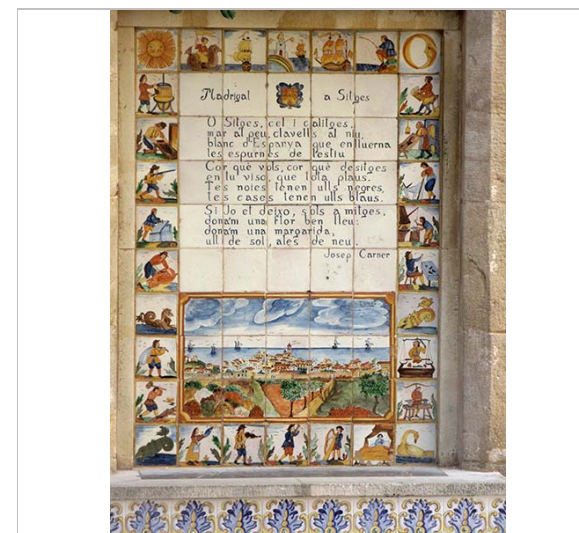 Madrigal a Sitges
O Sitges, cel i calitges,
mar al peu, clavells al niu,
blanc d'Espanya que enlluerna
les espurnes de l'estiu
Cor què vols, cor què desitges
en tu visc, que tota plaus.
Tes noies tenen ulls negres,
tes cases tenen ulls blaus.
Si jo et deixo, sols a mitges,
dona'm una flor ben lleu:
dona'm una margarida,
ull de sol, ales de neu.
Josep Carner